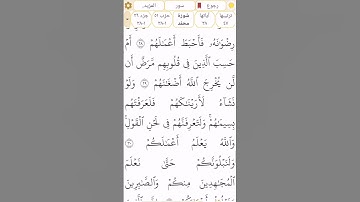 رجوع سور المزيد..
ترتيبها ٤٧ آياتها ٣٨ سورة محمد حزب ٥١ ١-٣٨ جزء ٢٦ ١-٣٨
رِضْوَٰنَهُۥ فَأَحْبَطَ أَعْمَٰلَهُمْ ﴿٢٨﴾ أَمْ
حَسِبَ ٱلَّذِينَ فِى قُلُوبِهِم مَّرَضٌ أَن
لَّن يُخْرِجَ ٱللَّهُ أَضْغَٰنَهُمْ ﴿٢٩﴾ وَلَوْ
نَشَآءُ لَأَرَيْنَٰكَهُمْ فَلَعَرَفْتَهُم
بِسِيمَٰهُمْ وَلَتَعْرِفَنَّهُمْ فِى لَحْنِ ٱلْقَوْلِ
وَٱللَّهُ يَعْلَمُ أَعْمَٰلَكُمْ ﴿٣٠﴾
وَلَنَبْلُوَنَّكُمْ حَتَّىٰ نَعْلَمَ
ٱلْمُجَٰهِدِينَ مِنكُمْ وَٱلصَّٰبِرِينَ